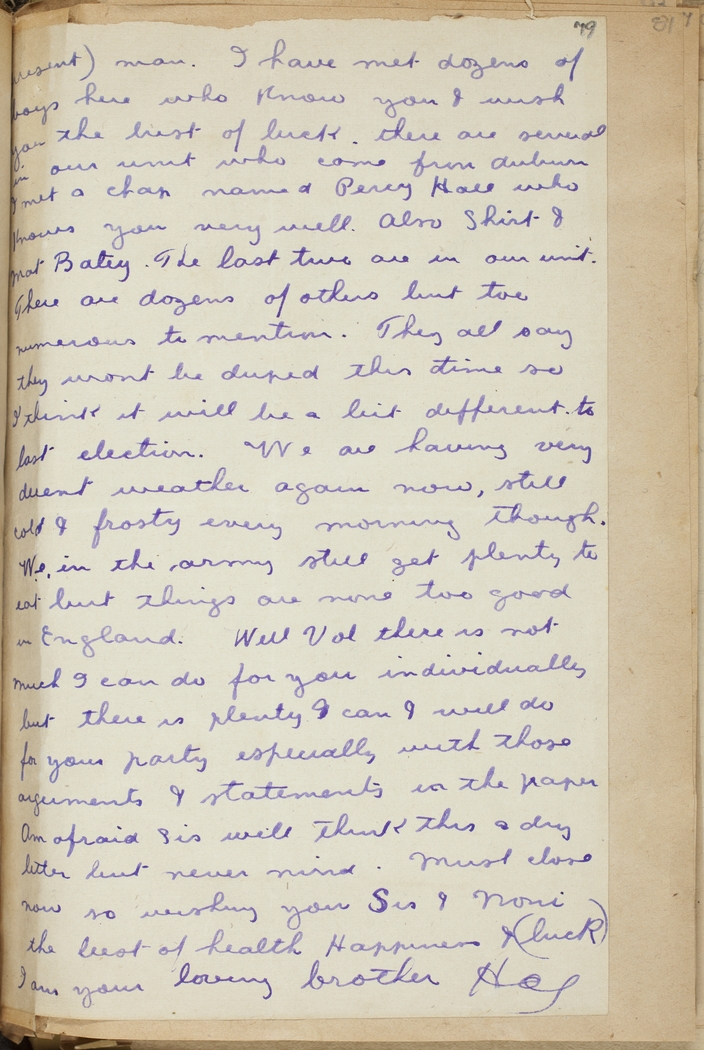 79
present) man. I have met dozens of
boys here who know you & wish
you the best of luck. there are several
in our unit who come from auburn
I met a chap named Percy Hall who
knows you very well. Also Shirt &
mat Batey. The last two are in our unit.
There are dozens of others but too
numerous to mention. They all say
they wont be duped this time so
I think it will be a bit different to
last election. We are having very
decent weather again now, still
cold & frosty every morning though.
We, in the army still get plenty to
eat but things are none too good
in England. Well Vol there is not
much I can do for you individually
but there is plenty I can & will do
for your party especially with those
arguments & statements in the paper
Am afraid Sis will think this a dry
letter but never mind. Must close
now so wishing you Sis & Noni
the best of health Happiness & (luck)
I am your loving brother